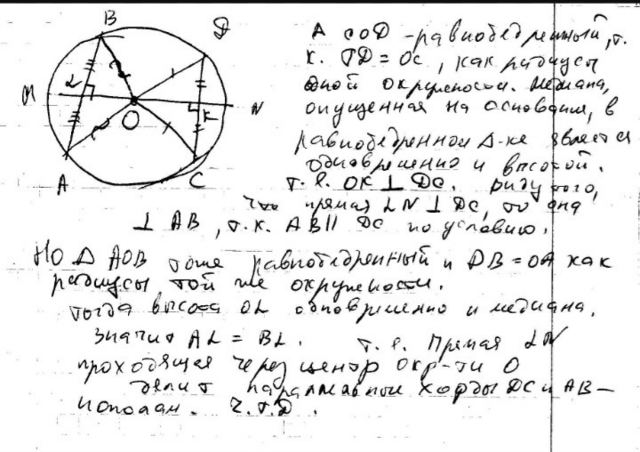 B
D
Δ COD - равнобедренный, т.
к. OD = OC, как радиусы
одной окружности. Медиана,
опущенная на основание, в
равнобедренном Δ-ке является
одновременно и высотой.
Т. е. OK ⊥ DC. Ввиду того,
что прямая LN ⊥ DC, то она
⊥ AB, т.к. AB || DC по условию.
M
L
K
N
O
A
C
Но Δ AOB тоже равнобедренный и OB = OA как
радиусы той же окружности.
Тогда высота OL одновременно и медиана.
Значит AL = BL. Т. е. прямая LN
проходящая через центр окр-ти O
делит параллельные хорды DC и AB -
пополам. Ч.Т.Д.